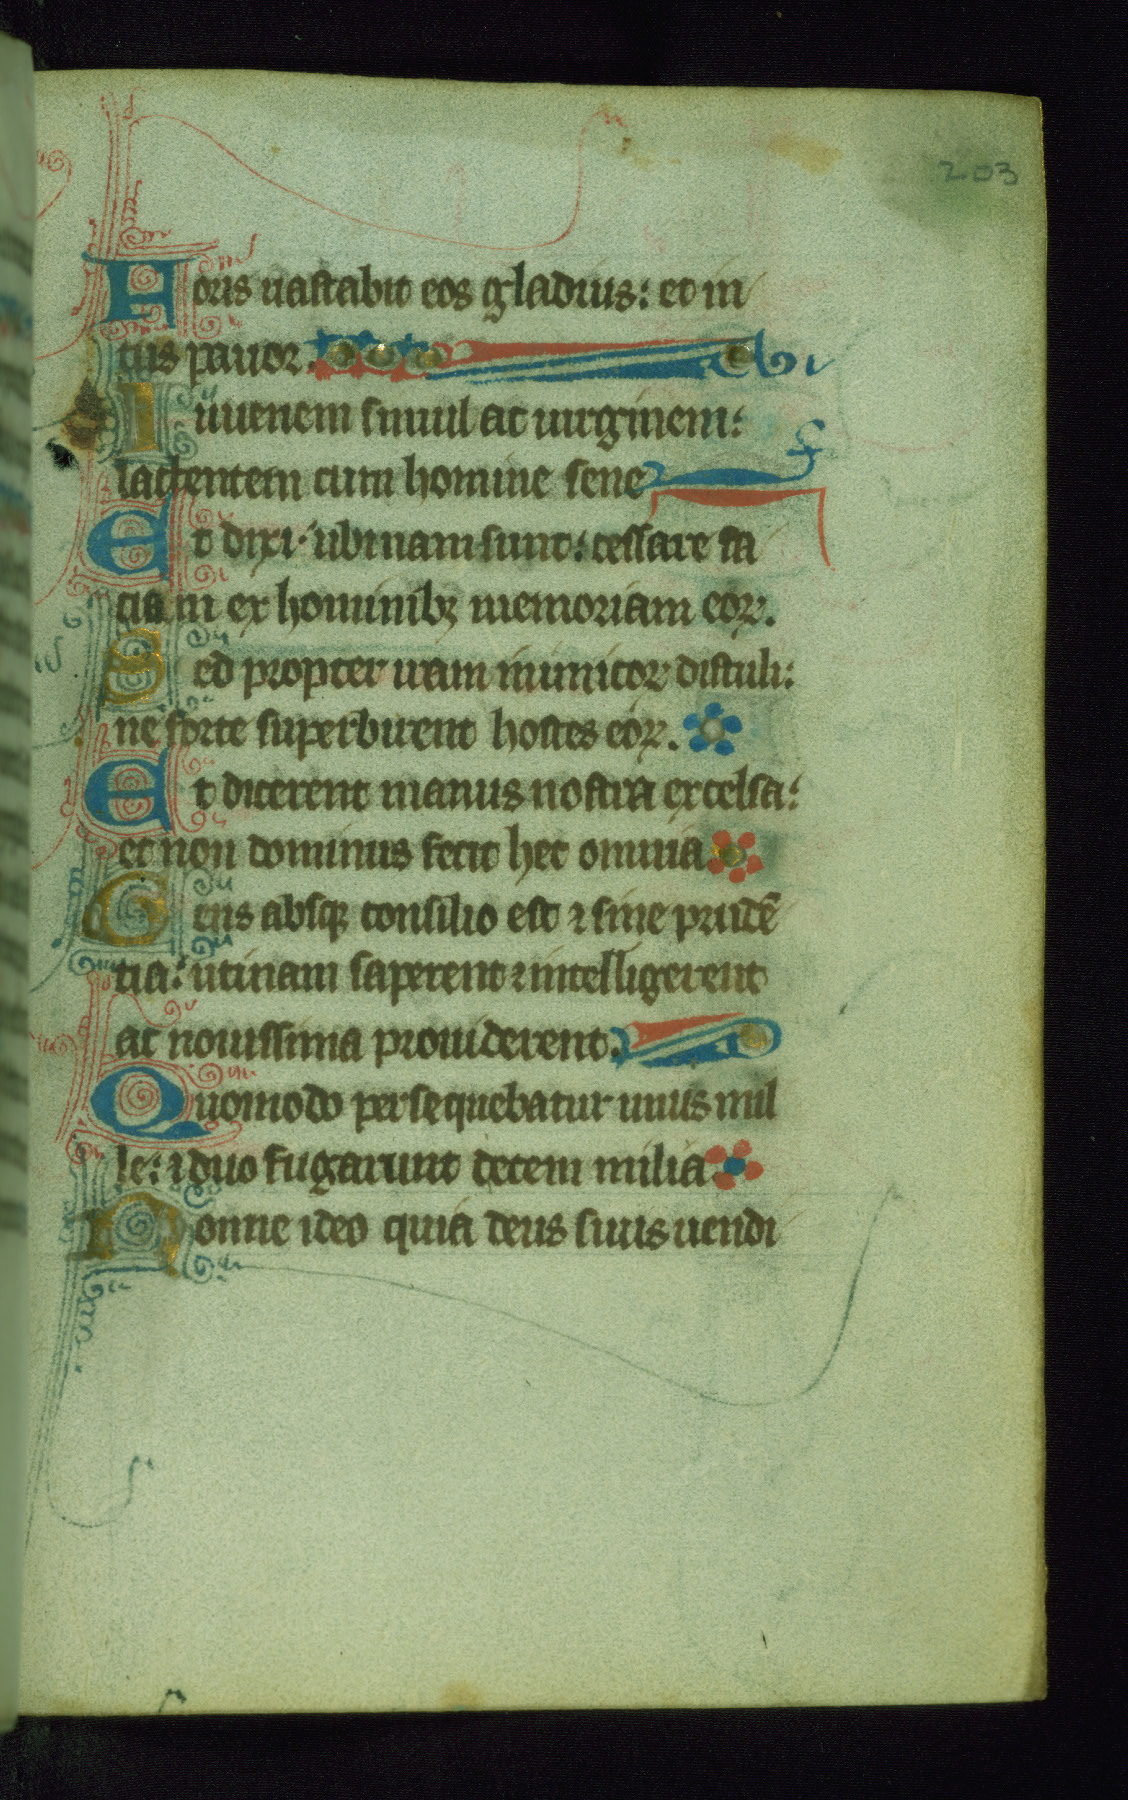 203
Foris uastabit eos gladius: et in
tus pauor.
Iuuenem simul ac uirginem:
lactentem cum homine sene
Et dixi ubinam sunt: cessare fa
ciam ex hominibꝫ memoriam eoꝝ.
Sed propter iram inimicoꝝ distuli:
ne forte superbirent hostes eoꝝ.
Et dicerent manus nostra excelsa:
et non dominus fecit hec omnia.
Gens absqꝫ consilio est ⁊ sine prudē
tia: utinam saperent ⁊ intelligerent
ac nouissima prouiderent.
Quomodo persequebatur unus mil
le: ⁊ duo fugarunt decem milia
Nonne ideo quia deus suus uendi